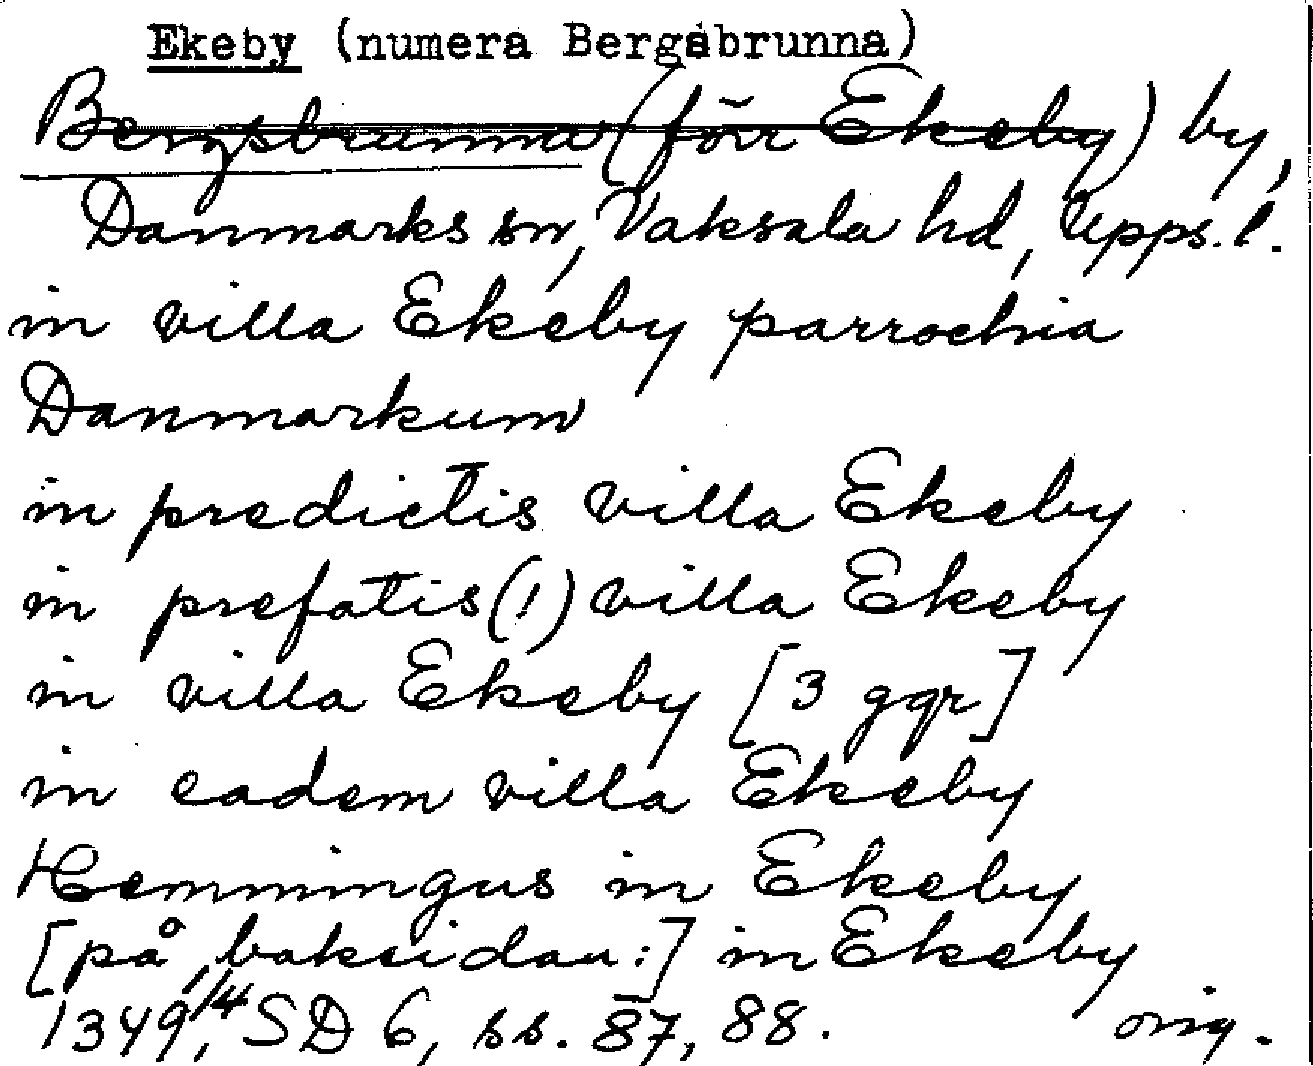 Ekeby (numera Bergsbrunna)
Bergsbrunna (förr Ekeby) by,
Danmarks sn, Vaksala hd, Upps. l.
in villa Ekeby parrochia
Danmarkum
in predictis villa Ekeby
in prefatis(!) villa Ekeby
in villa Ekeby [3 ggr]
in eadem villa Ekeby
Hemmingus in Ekeby
[på baksidan:] in Ekeby
1349, 1/4 SD 6, ss. 87, 88. orig.